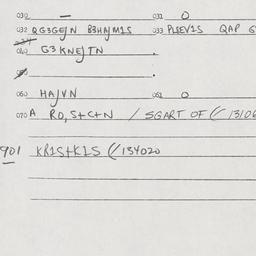 030 — 031 0
032 QG3GEJN B3HNJM1S 033 PLSEV1S QAP G
040 G3 KNEJTN
060 HAJVN 061 0
070 A RO, S+C+N / SGART OF (/ 13106
901 KR1S+K1S (/ 134020